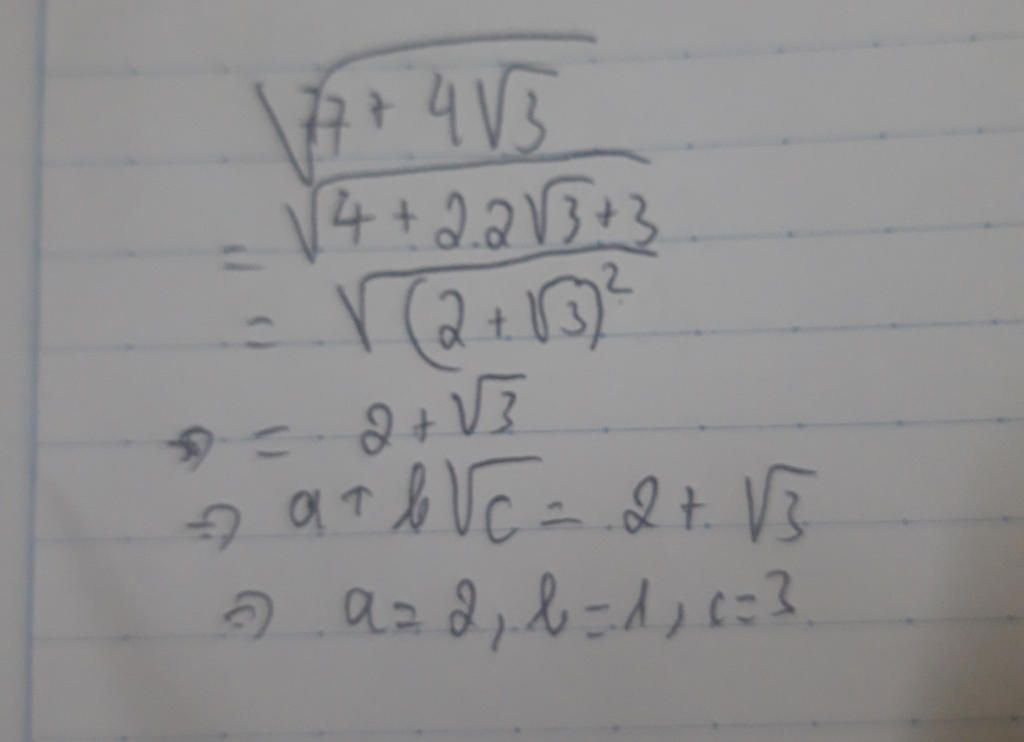 √(7+4√3)
= √(4+2.2√3+3)
= √((2+√3)²)
= 2+√3
⇒ a+b√c = 2+√3
⇒ a=2, b=1, c=3